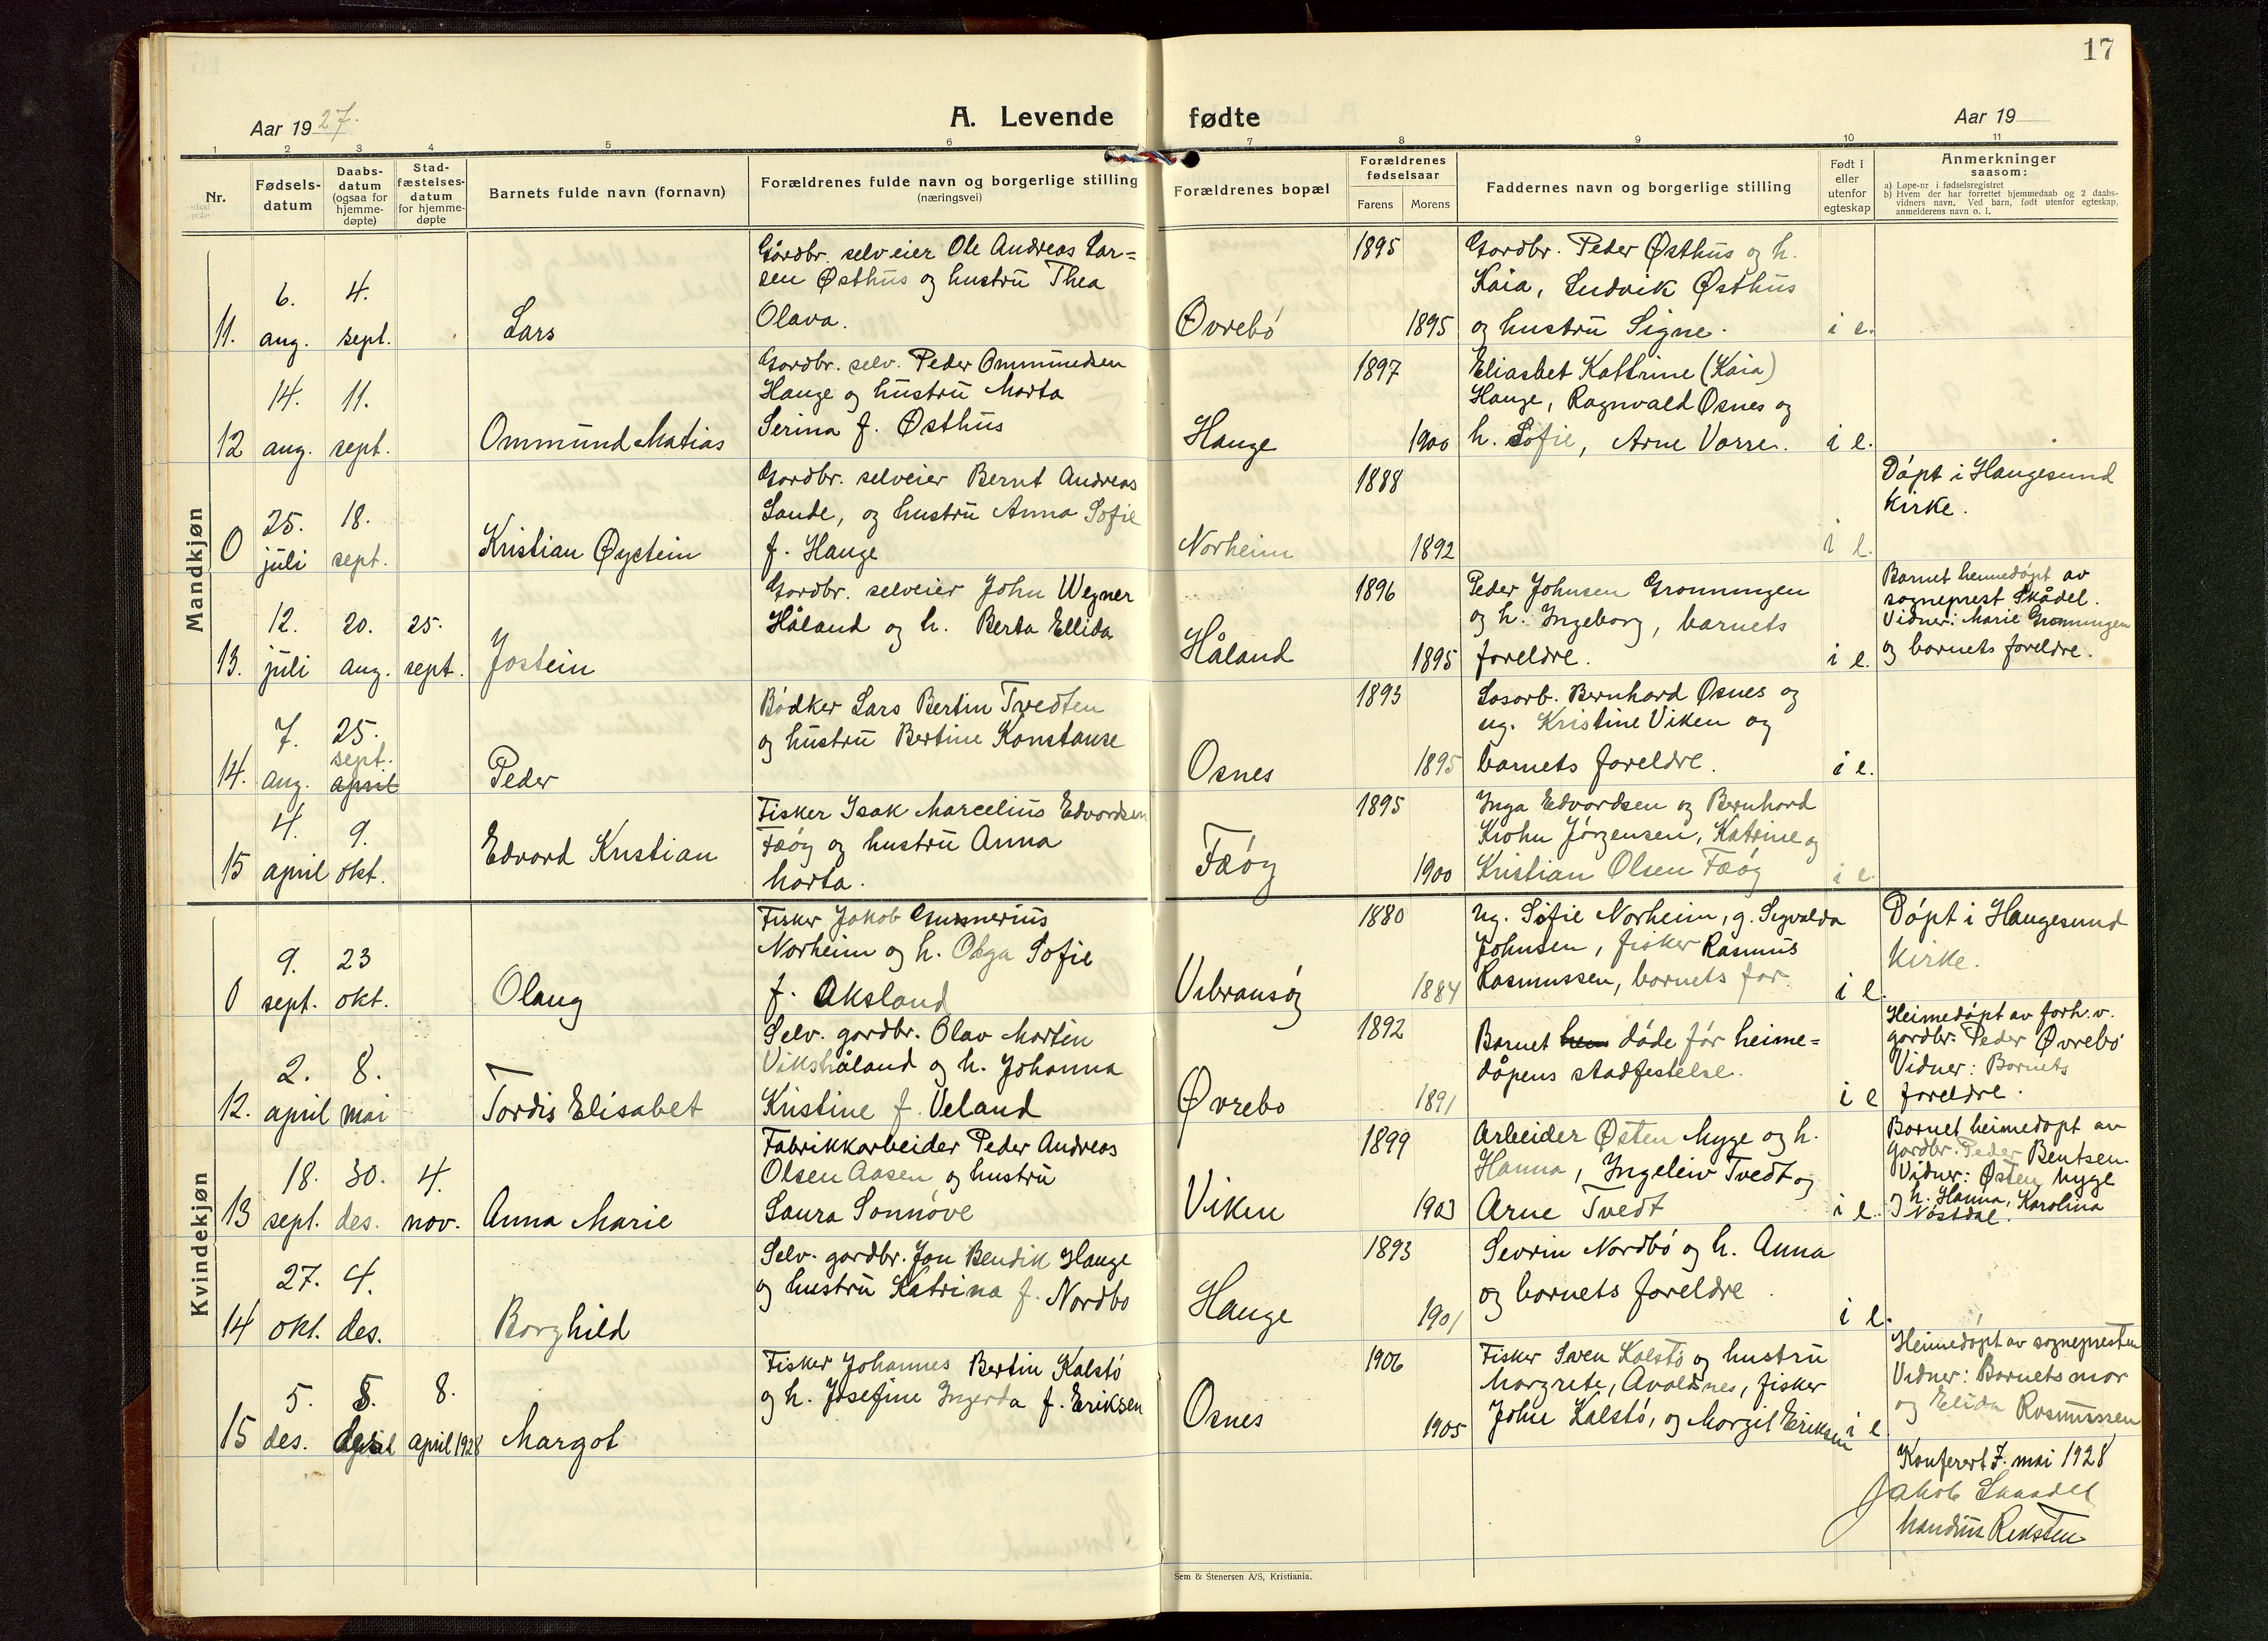 17
Aar 1927.
A. Levende fødte
Aar 19
1 2 3 4 5 6 7 8 9 10 11
Nr.
Fødsels-
datum
Daabs-
datum
(ogsaa for
hjemme-
døpte)
Stad-
fæstelses-
datum
for hjemme-
døpte
Barnets fulde navn (fornavn)
Forældrenes fulde navn og borgerlige stilling
(næringsvei)
Forældrenes bopæl
Forældrenes
fødselsaar
Farens Morens
Faddernes navn og borgerlige stilling
Født i
eller
utenfor
egteskap
Anmerkninger
saasom:
a) Løpe-nr i fødselsregistret
b) Hvem der har forrettet hjemmedaab og 2 daabs-
vidners navn. Ved barn, født utenfor egteskap,
anmelderens navn o. l.
Mandkjøn
11.
6.
aug.
4.
sept.
Lars
Gårdbr. selveier Ole Andreas Lar=
sen Østhus og hustru Thea
Olava.
Øvrebö
1895
1895
Gardbr. Peder Østhus og h.
Kaia, Ludvik Østhus
og hustru Signe.
i e.
12
14.
aug.
11.
sept.
Ommund Matias
Gardbr. selv. Peder Ommundsen
Hauge og hustru Marta
Serina f. Østhus
Hauge
1897
1900
Eliasbet Kathrine (Kaia)
Hauge, Ragnvald Osnes og
h. Sofie, Arne Varre.
i e.
0
25.
juli
18.
sept.
Kristian Øystein
Gardbr. selveier Bernt Andreas
Sande, og hustru Anna Sofie
f. Hauge
Norheim
1888
1892
i e.
Döpt i Haugesund
Kirke.
13.
12.
juli
20.
aug.
25.
sept.
Jostein
Gardbr. selveier John Wegner
Håland og h. Berta Ellida
Håland
1896
1895
Peder Johnsen Gronningen
og h. Ingeborg, barnets
foreldre.
i e.
Barnet hemedöpt av
sogneprest Skådel.
Vidner: Marie Gronningen
og barnets foreldre.
14.
7.
aug.
25.
sept.
april
Peder
Bödker Lars Bertin Tvedten
og hustru Bertine Konstanse
Osnes
1893
1895
Losarb. Bernhard Osnes og
ug. Kristine Viken og
barnets foreldre.
i e.
15
4.
april
9.
okt.
Edvard Kristian
Fisker Isak Marcelius Edvardsen
Fæöy og hustru Anna
Marta.
Fæöy
1895
1900
Inga Edvardsen og Bernhard
Krohn Jörgensen, Katrine og
Kristian Olsen Fæöy
i e.
Kvindekjøn
0
9.
sept.
23
okt.
Olaug
Fisker Jakob Gunnerius
Norheim og h. Olga Sofie
f. Aksland
Vibransöy
1880
1884
ug. Sofie Norheim, g. Sigvalda
Johnsen, fisker Rasmus
Rasmussen, barnets far.
i e.
Döpt i Haugesund
Kirke.
12.
2.
april
8.
mai
Tordis Elisabet
Selv. gardbr. Olav Martin
Vikshåland og h. Johanna
Kristine f. Veland
Øvrebo
1892
1891
Barnet hem döde för heime=
dåpens stadfestelse.
i e
Heimedöpt av forh. v.
gardbr. Peder Øvrebö
Vidner: Barnets
foreldre.
13
18.
sept.
30.
des.
4.
nov.
Anna Marie
Fabrikkarbeider Peder Andreas
Olsen Aasen og hustru
Laura Sonnöve
Viken
1899
1903
Arbeider Østen Myge og h.
Hanna, Ingeleiv Tvedt og
Arne Tvedt
i e.
Barnet heimedöpt av
gardbr. Peder Bentsen.
Vidner: Østen Myge
og h. Hanna, Karolina
Nöstdal.
14
27.
okt.
4.
des.
Borghild
Selv. gardbr. Jon Bendik Hauge
og hustru Katrina f. Nordbo
Hauge
1893
1901
Sevrin Nordbö og h. Anna
og barnets foreldre.
i e.
15
5.
des.
8.
8.
april 1928
Margot
Fisker Johannes Bertin Kalstö
og h. Josefine Ingerda f. Eriksen
Osnes
1906
1905
Fisker Sven Kalstö og hustru
Margrete, Avaldsnes, fisker
John Kalstö, og Margit Eriksen
i e
Heimedöpt av sognepresten
Vidner: Barnets mor
og Elida Rasmussen
Konferert 7. mai 1928
Jakob Skaadel
Reksten
Sem & Stenersen A/S, Kristiania.